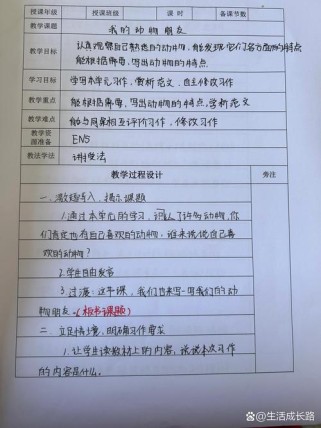 授课年级 授课班级 课时 备课节数
教学课题 我的动物朋友
教学目标 认真观察自己熟悉的动物,能发现它们各方面的特点
能根据需要,写出动物的特点
学习目标 学写本单元习作,赏析范文,自主修改习作
教学重点 能根据需要,写出动物的特点,赏析范文
教学难点 能与同桌相互评价习作,修改习作
教学资源准备 EN5
教法学法 讲授法
教学过程设计 旁注
一、激趣导入,揭示课题
1.通过本单元的学习,认识了许多动物,你
们肯定也有自己喜欢的动物,谁来说说自己喜
欢的动物?
2.学生自由发言
3.过渡:这节课,我们也来写一写我们的动
物朋友。(板书课题)
二、立足情境,明确习作要求
1.让学生读教材上的内容,说说本次习作
的内容是什么。
@生活成长路